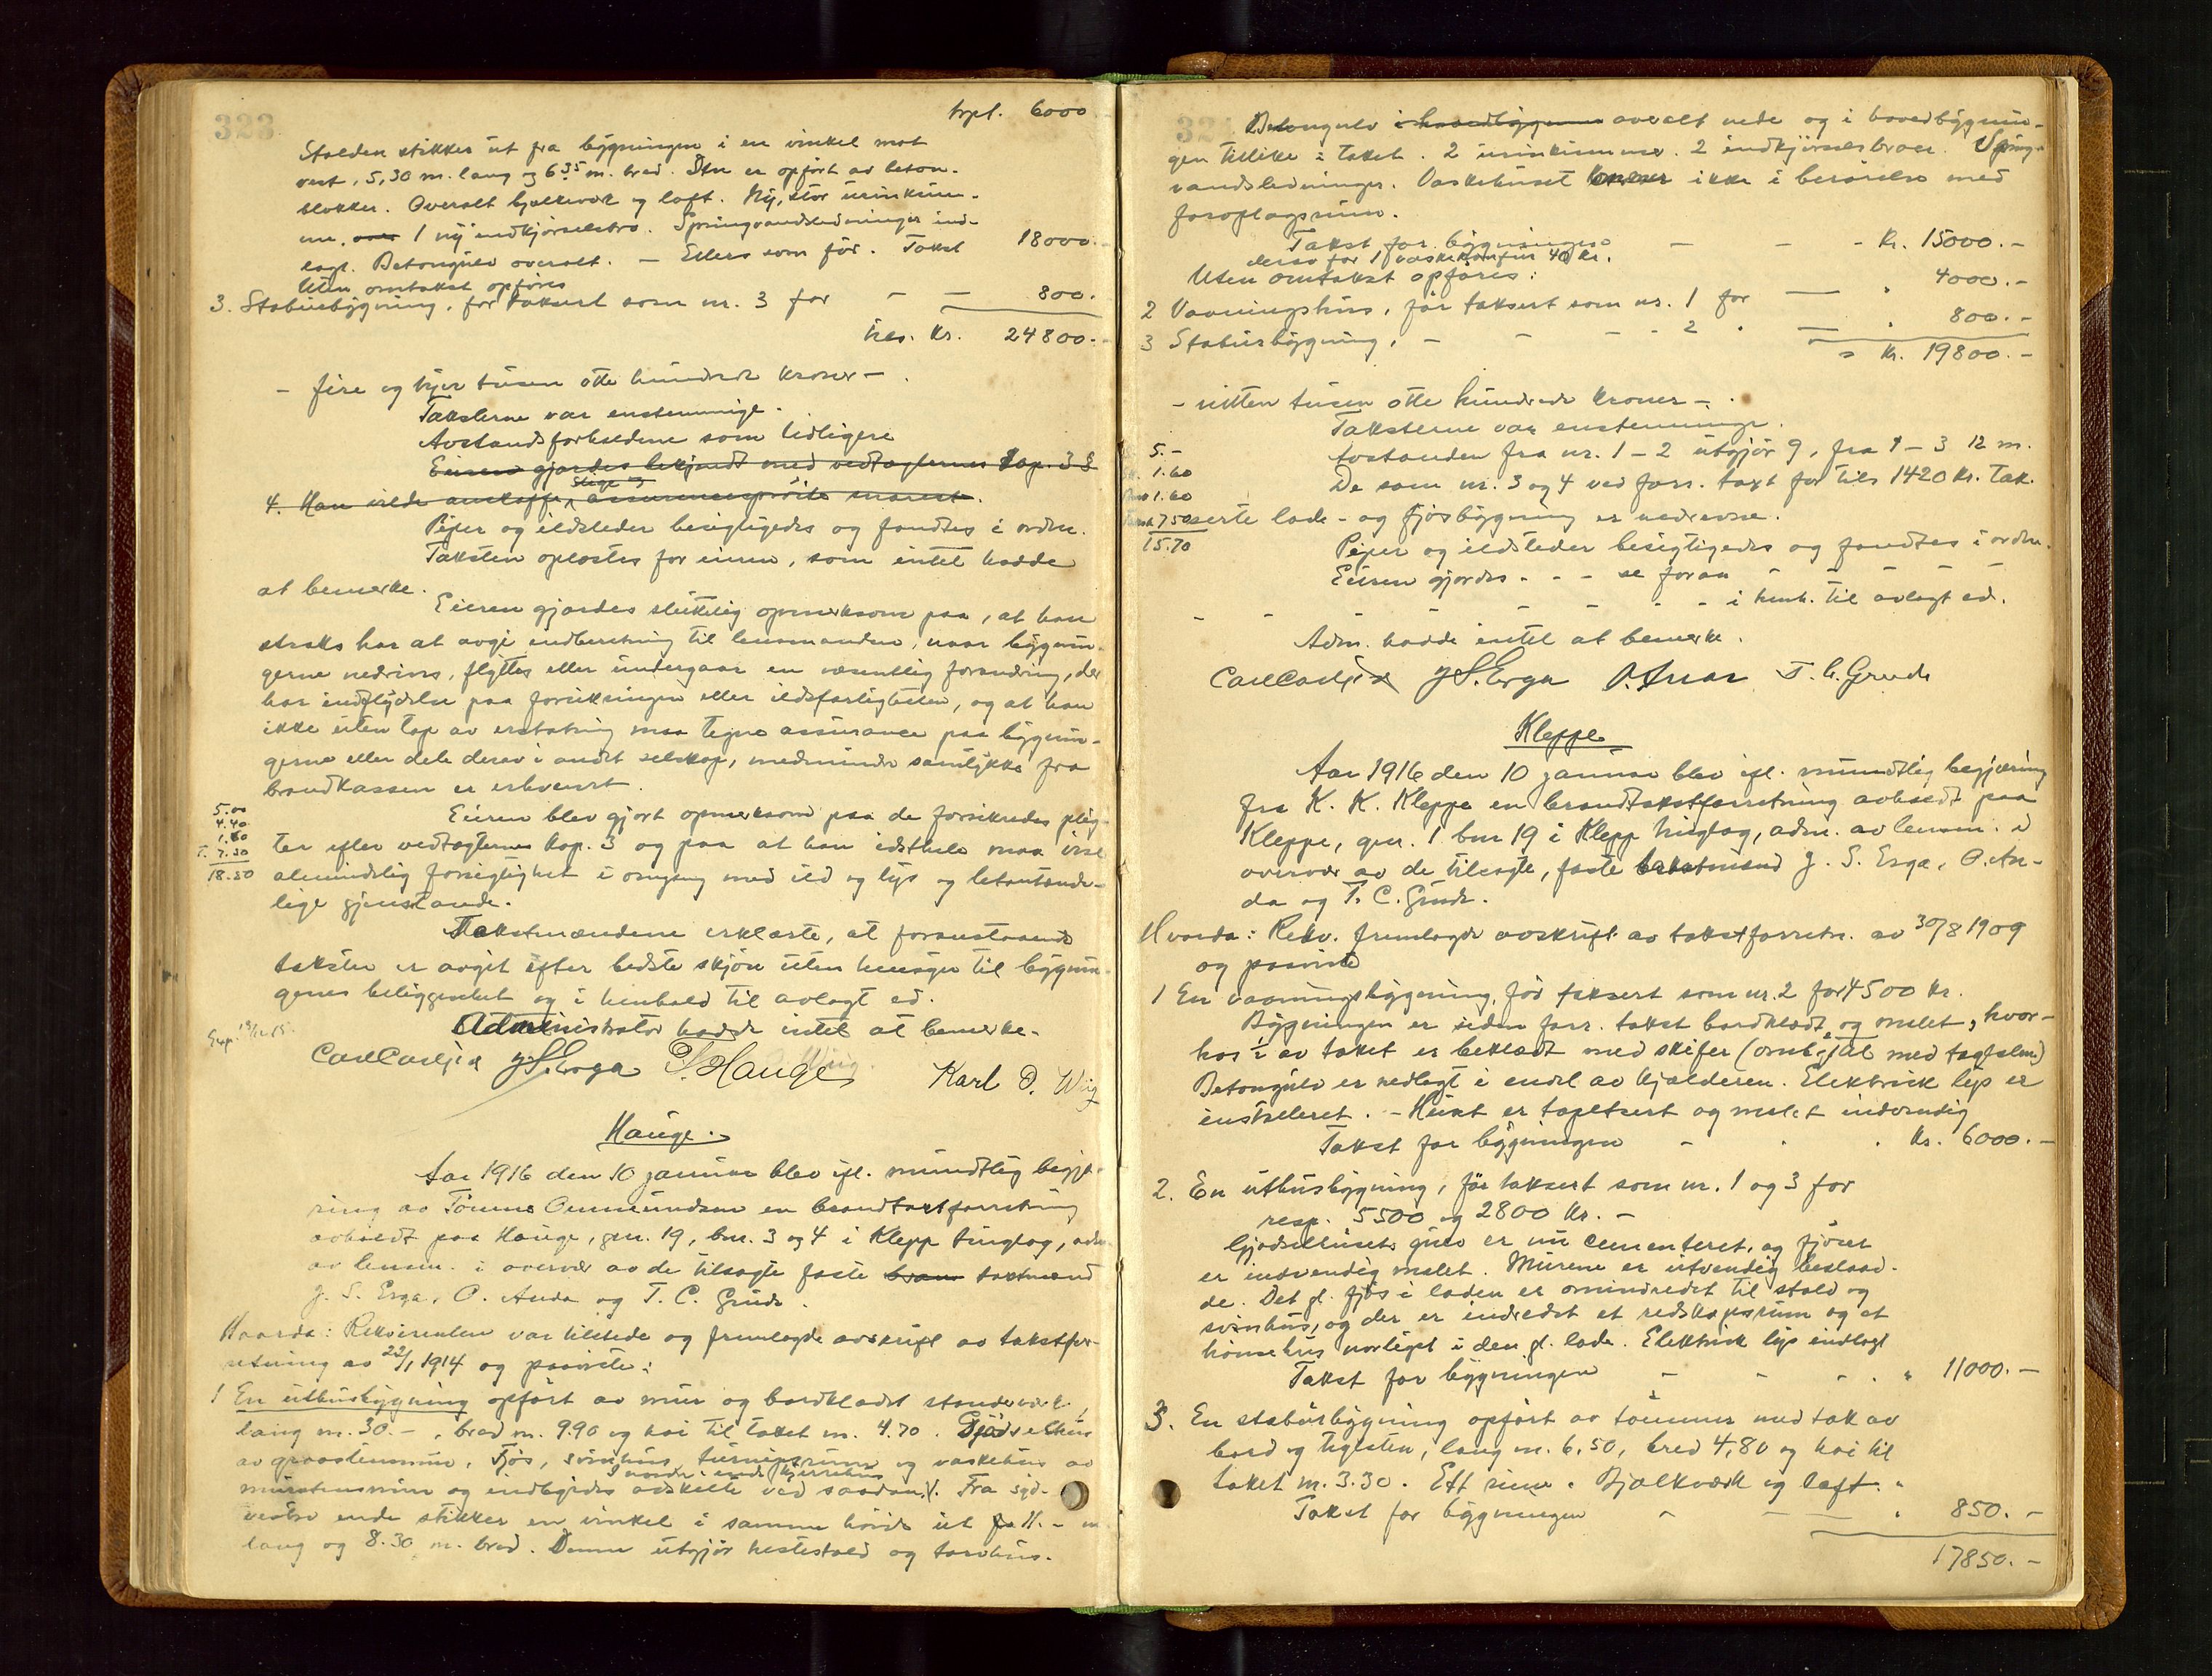 323
trpt. 6000
Stalden stikker ut fra bygningen i en vinkel mot
vest, 5,30 m. lang og 6.35 m. bred. Den er opført av beton-
blokker. Overalt bjelkeverk og loft. Ny, stor urinkum-
me, 1 ny indkjørselsbro. Springvandsledninger ind-
lagt. Betongulv overalt. — Ellers som før. Takst 18000.-
Uten omtakst opføres
3. Stabursbygning, før taksert som nr. 3 for — — 800.
Kr. 24800.-
- fire og tyve tusen otte hundrede kroner - .
Taksterne var enstemmige.
Avstandsforholdene som tidligere
Eieren gjordes bekjendt med vedtægternes kap. 3 §
4. Han vilde anskaffe stige og snarest.
Piper og ildsteder besigtigedes og fandtes i orden.
Taksten oplæstes for eieren, som intet hadde
at bemerke.
Eieren gjordes sluttelig opmerksom paa, at han
straks har at avgi indberetning til lensmanden, naar bygnin-
gerne nedrives, flyttes eller undergaar en væsentlig forandring, der
har indflydelse paa forsikringen eller ildsfarligheten, og at han
ikke uten tap av erstatning maa tegne assurance paa bygnin-
gerne eller dele derav i andet selskap, medmindre samtykke fra
brandkassen er erhvervet.
5.00
4.40
1.60
T. 7.50
18.50
Eieren blev gjort opmerksom paa de forsikredes plig-
ter efter vedtægternes kap. 3 og paa at han idethele maa vise
almindelig forsigtighet i omgang med ild og lys og letantænde-
lige gjenstande.
Takstmændene erklærte, at foranstaaende
takster er avgit efter bedste skjøn uten hensyn til bygnin-
genes beliggenhet og i henhold til avlagt ed.
Administrator hadde intet at bemerke.
Carl Carlsen J. S. Erga S. Hauge Karl O. Wiig
Hauge.
Aar 1916 den 10 januar blev ifl. mundtlig begjæ-
ring av Tønnes Ommundsen en brandtakstforretning
avholdt paa Hauge, gnr. 19, bnr. 3 og 4 i Klepp tinglag, adm.
av lensm. i overvær av de tilsagte faste taxtmænd
J. S. Erga, O. Anda og T. C. Grude.
Hvorda: Rekvirenten var tilstede og fremlagde avskrift av takstfor-
retning av 22/1 1914 og paaviste:
1 En uthusbygning opført av mur og bordklædt stenderverk,
lang m. 30.-, bred m. 9.90 og høi til taket m. 4.70. Gjødselhus
av graastensmur. Fjøs, svinhus, turnipsrum og vaskehus av
murstensmur og indbyrdes adskilte ved saadan. Fra syd-
vestre ende stikker en vinkel i samme høide ut 11.- m
lang og 8.30 m. bred. Denne utgjør hestestald og torvhus.
Betongulv i hovedbygningen overalt nede og i hovedbygnin-
gen tillike i taket. 2 urinkummer. 2 indkjørselsbroer. Spring-
vandsledninger. Vaskehuset ikke i berørelse med
foroplagsrum.
Takst for bygningen — — - Kr. 15000.-
derav for 1 vaskekomfur 40 kr.
Uten omtakst opføres:
2 Vaaningshus, før taksert som nr. 1 for — " 4000.-
3 Stabursbygning, — — — 2 " — " 800.-
= Kr. 19800.-
- nitten tusen otte hundrede kroner - .
Taksterne var enstemmige.
Avstanden fra nr. 1-2 utgjør 9, fra 1-3 12 m.
5.-
1.60
1.60
7.50
15.70
De som nr. 3 og 4 ved forr. taxt for tils 1420 kr. tak-
serte lade- og fjøsbygning er nedrevne.
Piper og ildsteder besigtigedes og fandtes i orden.
Eieren gjordes - - - se foran - - - -
- - - - - - - i henh. til avlagt ed.
Adm. hadde intet at bemerke.
Carl Carlsen J. S. Erga O. Anda T. C. Grude
Kleppe
Aar 1916 den 10 januar blev ifl. mundtlig begjæring
fra K. K. Kleppe en brandtakstforretning avholdt paa
Kleppe, gnr. 1 bnr 19 i Klepp tinglag, adm. av lensm. i
overvær av de tilsagte, faste takstmænd J. S. Erga, O. An-
da og T. C. Grude.
Hvorda: Rekv. fremlagde avskrift av takstforretn. av 30/8 1909
og paaviste
1 En vaaningsbygning, før taksert som nr. 2 for 4500 kr.
Bygningen er siden forr. takst bordklædt og malet, hvor-
hos ½ av taket er beklædt med skifer (ombyttet med tagsten)
Betongulv er nedlagt i endel av kjælderen. Elektrisk lys er
installeret. - Huset er tapetsert og malet indvendig
Takst for bygningen - - . Kr. 6000.-
2. En uthusbygning, før taksert som nr. 1 og 3 for
resp. 5500 og 2800 kr. -
Gjødselhusets gulv er nu cementeret, og fjøset
er indvendig malet. Murene er utvendig beslaa-
de. Det gl. fjøs i laden er omindredet til stald og
svinhus, og der er indredet et redskapsrum og et
hønsehus nordligst i den gl. lade. Elektrisk lys indlagt
Takst for bygningen - - - . " 11000.-
3. En stabursbygning opført av tømmer med tak av
bord og teglsten, lang m. 6.50, bred 4,80 og høi til
taket m. 3.30. Ett rum. Bjelkverk og loft.
Takst for bygningen - — — . 850.-
17850.-